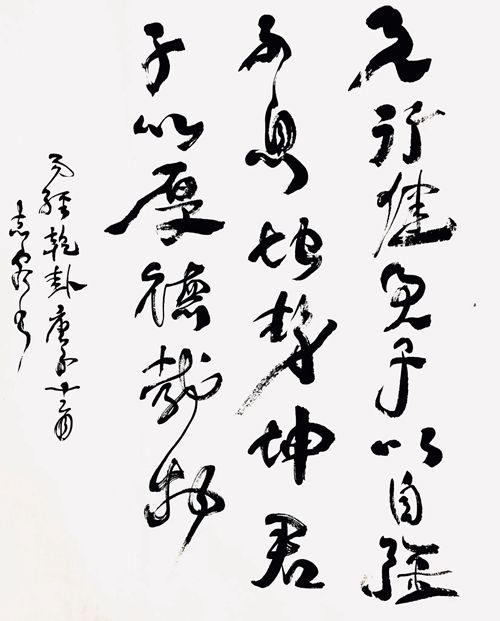 天行健君子以自强
不息地势坤君
子以厚德载物
易经乾卦庚子十二月